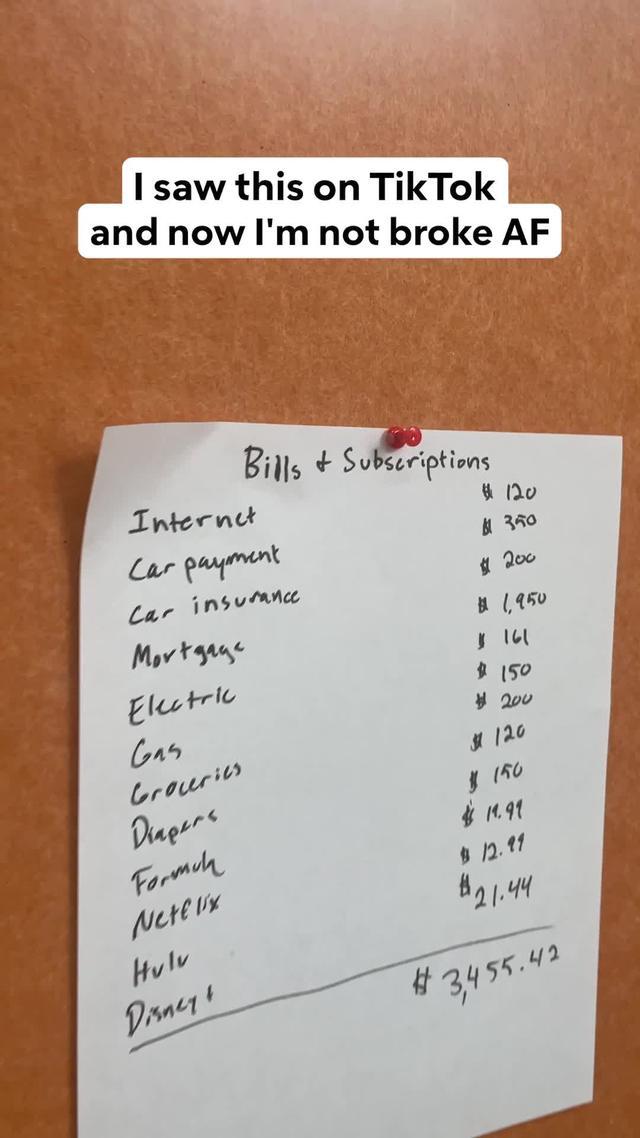 I saw this on TikTok
and now I'm not broke AF
Bills + Subscriptions
Internet $ 120
Car payment $ 350
Car insurance $ 200
Mortgage $ 1,950
Electric $ 161
Gas $ 150
Groceries $ 200
Diapers $ 120
Formula $ 150
Netflix $ 19.99
Hulu $ 12.99
Disney + $ 21.44
$ 3,455.42